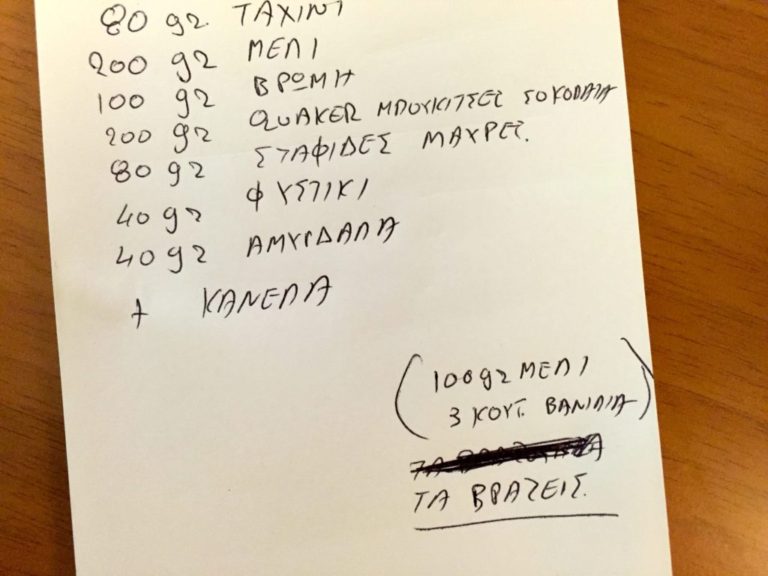 80 gr. ΤΑΧΙΝΙ
200 gr ΜΕΛΙ
100 gr ΒΡΩΜΗ
200 gr QUAKER ΜΠΟΥΚΙΤΣΕΣ ΣΟΚΟΛΑΤΑ
80 gr ΣΤΑΦΙΔΕΣ ΜΑΥΡΕΣ.
40 gr ΦΥΣΤΙΚΙ
40 gr ΑΜΥΓΔΑΛΑ
+ ΚΑΝΕΛΑ
(100gr ΜΕΛΙ
3 ΚΟΥΤ. ΒΑΝΙΛΙΑ)
ΤΑ ΒΡΑΖΕΙΣ.